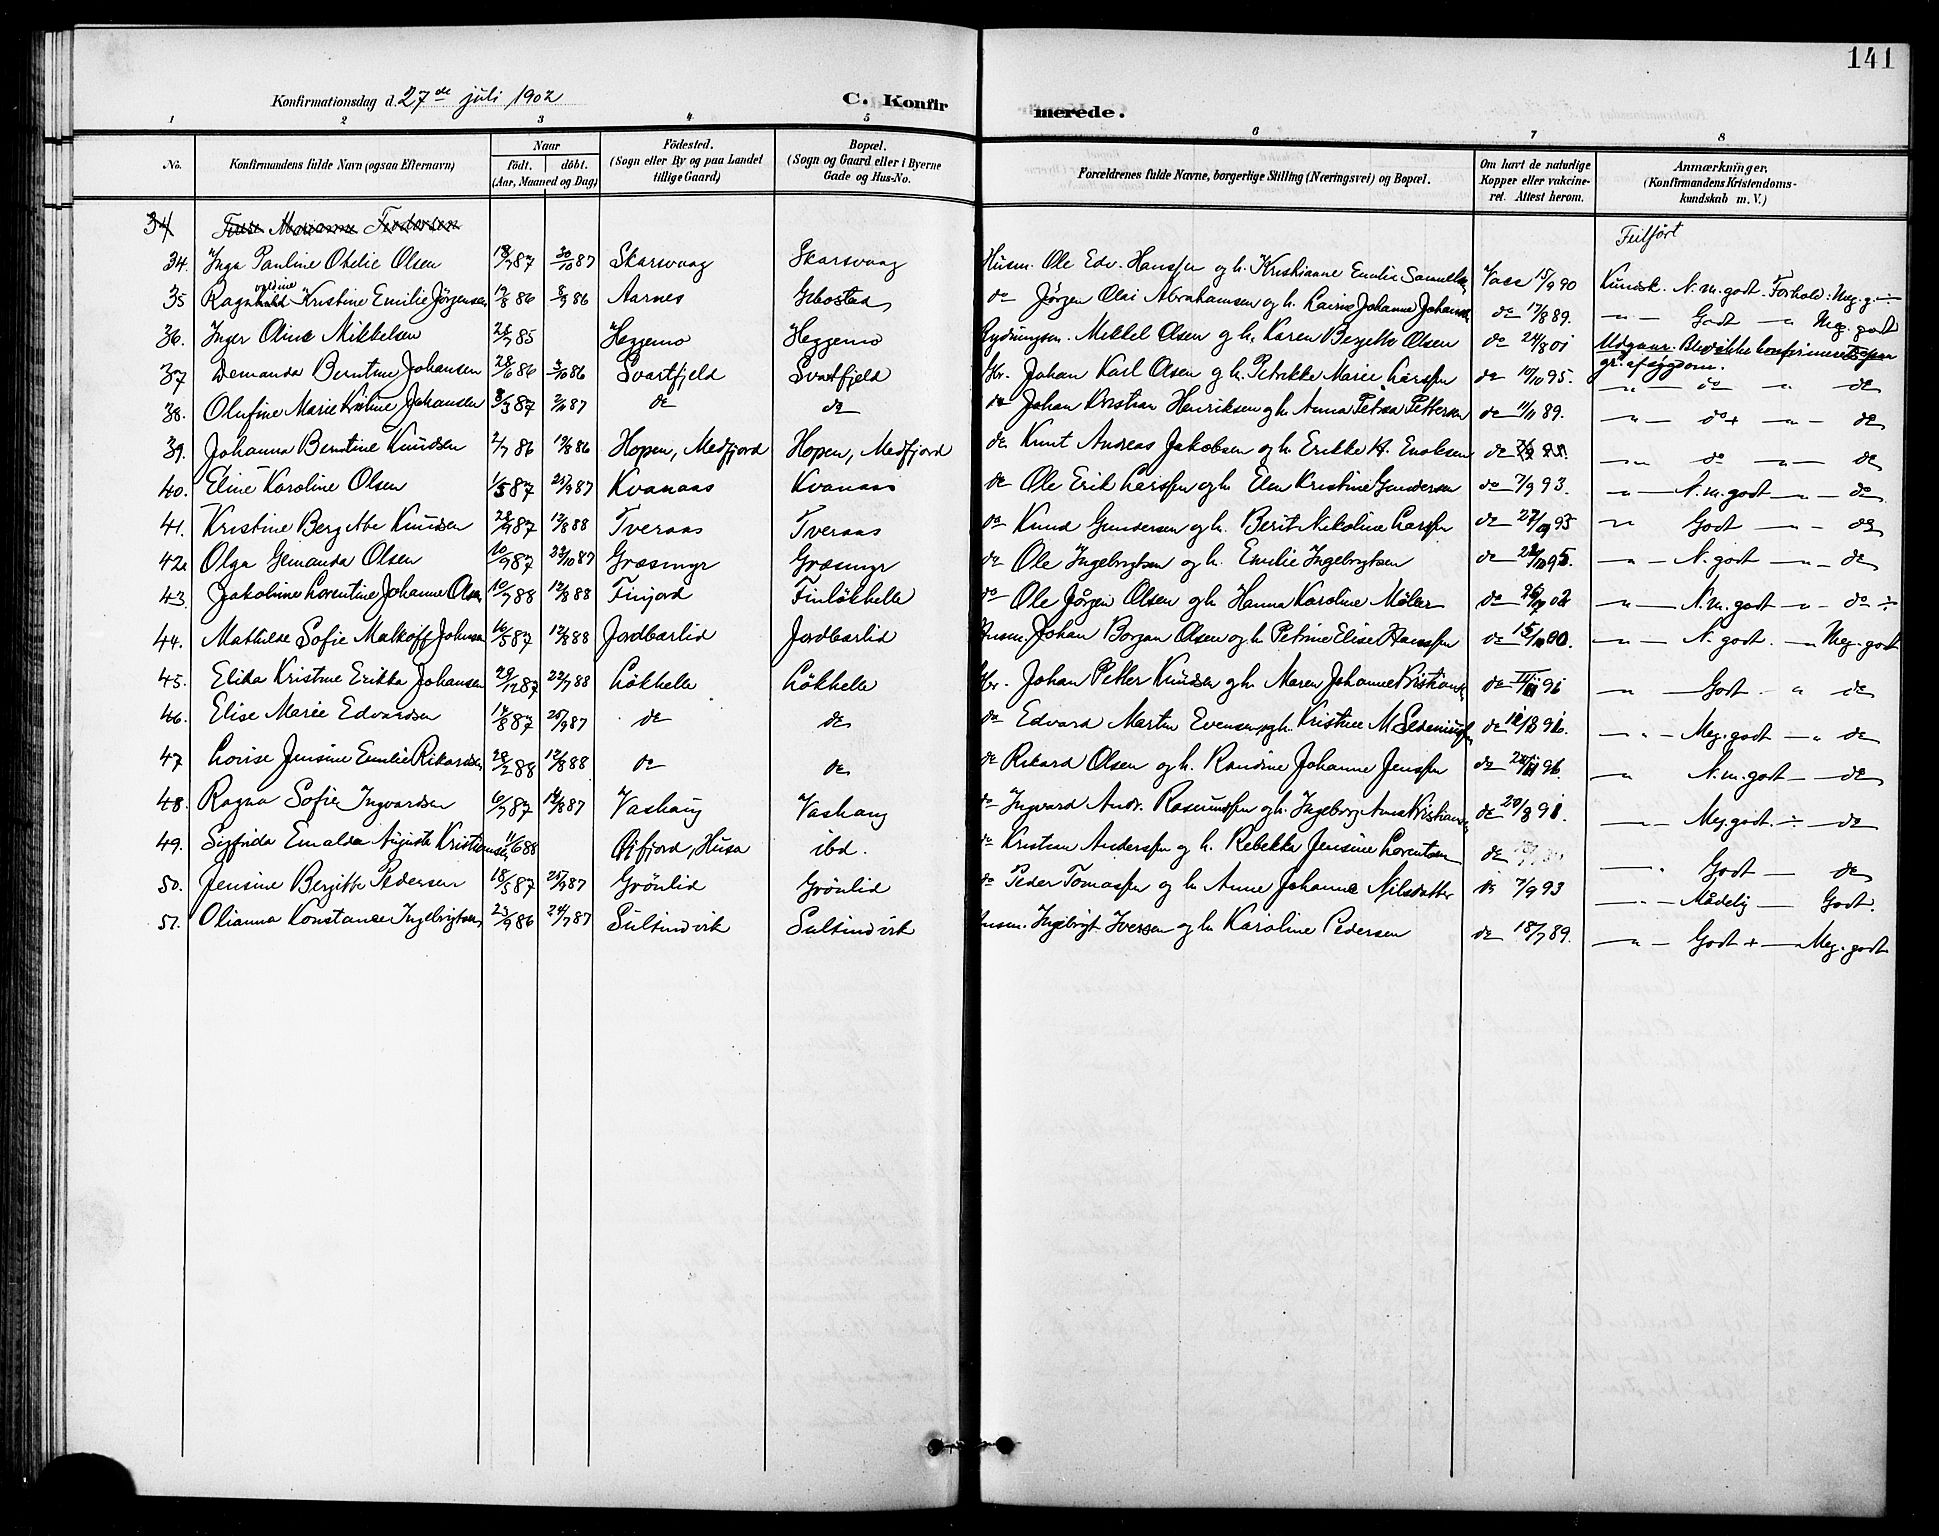 141
Konfirmationsdag d. 27de juli 1902
C. Konfirmerede.
1 2 3 4 5 6 7 8
No. Konfirmandens fulde Navn (ogsaa Efternavn) Naar født. døbt. (Aar, Maaned og Dag) Fødested. (Sogn eller By og paa Landet tillige Gaard) Bopæl. (Sogn og Gaard eller i Byerne Gade og Hus-No. Forældrenes fulde Navne, borgerlige Stilling (Næringsvei) og Bopæl. Om havt de naturlige Kopper eller vakcineret. Attest herom. Anmærkninger. (Konfirmandens Kristendomskundskab m. V.)
34 Marianne Feilført
34. Inga Pauline Obelie Olsen 30/10 87 Skarsvaag Skarsvaag Husm. Ole Edv. Hanssen og h. Kristianne Emilie Vacc 15/9 90 Kundsk. N. m. godt. Forhold: Meg. g. ÷
35 Ragnvaldine Kristine Emilie Jørgensen 19/8 86 8/9 86 Aarnes Gibostad do Jørgen Olai Abrahamsen og h. Johanne do 17/8 89. — " — Godt — " Meg. godt
36. Inger Oline Mikkelsen 85 Heggemo Heggemo Mikkel Olsen og h. Karen Bergitte Olsen do 24/8 01 Udgaar. Blev ikke konfirmeret
37 Demanda Berntine Johansen 28/6 86 3/10 86 Svartfjeld Svartfjeld Gbr. Johan Karl Olsen og h. Petrikke Marie Larssen do 10/10 95. — " — do — " — do
38. Olufine Marie Johansen 87 87 do do do Johan Kristian Henriksen og h. Anna Petrea Pettersen do 11/11 89. — " — do + — " — do
39. Johanna Berntine Knudsen 2/7 86 19/8 86 Hopen, Medfjord Hopen, Medfjord do Knut Andreas Jakobsen og h. Erikke H. Enoksen do — " — do — " — do
40. Eline Karoline Olsen 1/5 87 25/9 87 Kvanaas Kvanaas do Ole Erik Larssen og h. Elen Kristine Gundersen do 7/9 93. — " — N. m. godt — " — do
41. Kristine Bergitte Knudsen 87 12/8 88 Tveraas Tveraas do Knud Gundersen og h. Berit Nikoline Larssen do — " Godt — " — do
42. Olga Gemanda Olsen 10/9 87 23/10 87 Græsmyr Græsmyr do Ole Ingebrigtsen og h. Emilie Ingebrigtsen do — " — N. godt — " — do
43. Jakobine Lorentine Johanne Olsen 10/7 88 12/8 88 Finjord Finløkhelle do Ole Jørgen Olsen og h. Hanna Karoline Møller do — " — N. m. godt — " — do ÷
44. Mathilde Sofie 10/5 87 88 Jordbærlid Jordbærlid Husm. Johan Borgan Olsen og h. Petrine Elise Hanssen do — " — N. godt. — " Meg. godt
45. Elida Kristine Erikka Johansen 29/12 87 22/7 88 Løkhelle Løkhelle Gbr. Johan Petter Knudsen og h. Maren Johanne do 96 — " — Godt. " do
46. Elise Marie Edvardsen 14/8 87 25/9 87 do do do Edvard Martin Evensen og h. Kristine M. do — " — Meg. godt — " do
47 Lovise Jensine Emilie Rikardsen 28/2 88 12/8 88 do do do Rikard Olsen og h. Randine Johanne Jenssen do — " N. m. godt — do
48. Ragna Sofie Ingvardsen 6/7 87 14/8 87 Vashaug Vashaug do Ingvard Andr. og h. Ingeborg Anna do 20/8 91. — " — Meg. godt. ÷ — do
49. Sigfrida Emalda Auguste Kristiansen 11/6 88 Øifjord, Husø ibd. do Kristian Anderssen og h. Rebekka Jensine Lorentsen do — " Godt — do
50. Jensine Bergitte Pedersen 18/5 87 25/9 87 Grønlid Grønlid do Peder Tomassen og h. Anne Johanne Nilsdatter do 7/9 93 — " — Maadelig — Godt.
51. Olianna Konstance Ingebrigtsen 23/9 86 24/7 87 Sultindvik Sultindvik Husm. Ingebrigt Iversen og h. Karoline Pedersen do 18/7 89. — " — Godt + — Meg. godt